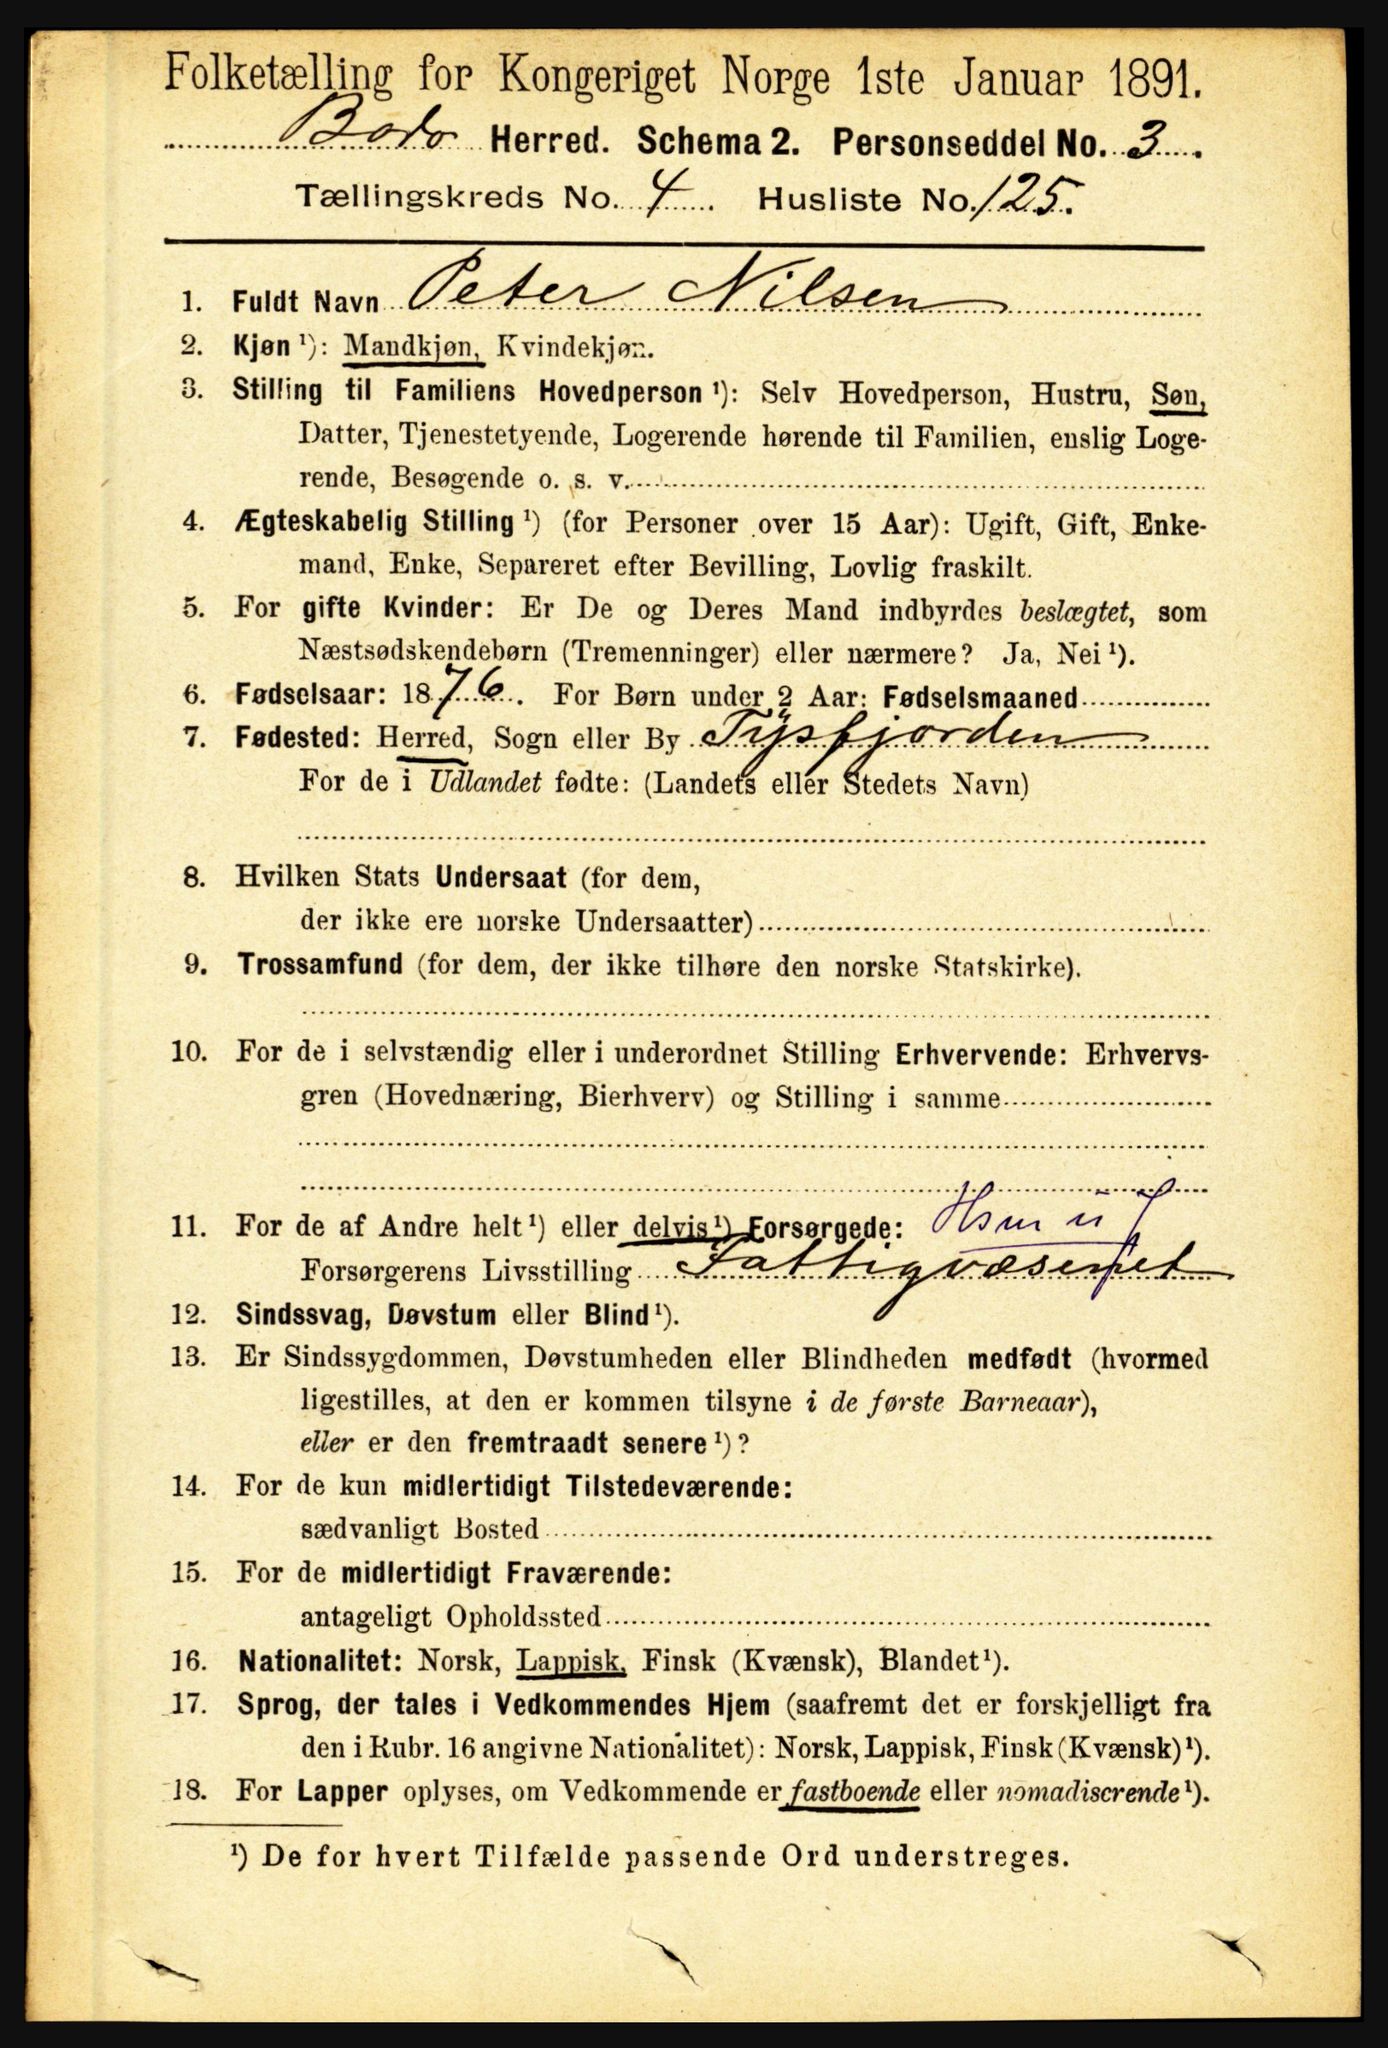 Folketælling for Kongeriget Norge 1ste Januar 1891.
Bodø Herred. Schema 2. Personseddel No. 3.
Tællingskreds No. 4. Husliste No. 125.
1. Fuldt Navn Peter Nilsen
2. Kjøn ¹): Mandkjøn, Kvindekjøn.
3. Stilling til Familiens Hovedperson ¹): Selv Hovedperson, Hustru, Søn,
Datter, Tjenestetyende, Logerende hørende til Familien, enslig Loge-
rende, Besøgende o. s. v.
4. Ægteskabelig Stilling ¹) (for Personer over 15 Aar): Ugift, Gift, Enke-
mand, Enke, Separeret efter Bevilling, Lovlig fraskilt.
5. For gifte Kvinder: Er De og Deres Mand indbyrdes beslægtet, som
Næstsødskendebørn (Tremenninger) eller nærmere? Ja, Nei ¹).
6. Fødselsaar: 1876. For Børn under 2 Aar: Fødselsmaaned
7. Fødested: Herred, Sogn eller By Tysfjorden
For de i Udlandet fødte: (Landets eller Stedets Navn)
8. Hvilken Stats Undersaat (for dem,
der ikke ere norske Undersaatter)
9. Trossamfund (for dem, der ikke tilhøre den norske Statskirke).
10. For de i selvstændig eller i underordnet Stilling Erhvervende: Erhvervs-
gren (Hovednæring, Bierhverv) og Stilling i samme
11. For de af Andre helt ¹) eller delvis ¹) Forsørgede:
Forsørgerens Livsstilling Fattigvæsenet
12. Sindssvag, Døvstum eller Blind ¹).
13. Er Sindssygdommen, Døvstumheden eller Blindheden medfødt (hvormed
ligestilles, at den er kommen tilsyne i de første Barneaar),
eller er den fremtraadt senere ¹)?
14. For de kun midlertidigt Tilstedeværende:
sædvanligt Bosted
15. For de midlertidigt Fraværende:
antageligt Opholdssted
16. Nationalitet: Norsk, Lappisk, Finsk (Kvænsk), Blandet ¹).
17. Sprog, der tales i Vedkommendes Hjem (saafremt det er forskjelligt fra
den i Rubr. 16 angivne Nationalitet): Norsk, Lappisk, Finsk (Kvænsk) ¹).
18. For Lapper oplyses, om Vedkommende er fastboende eller nomadiserende ¹).
¹) De for hvert Tilfælde passende Ord understreges.